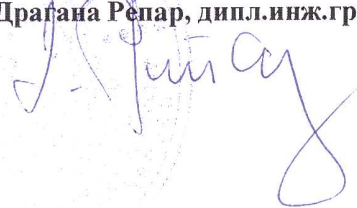 Драгана Репар, дипл.инж.гр